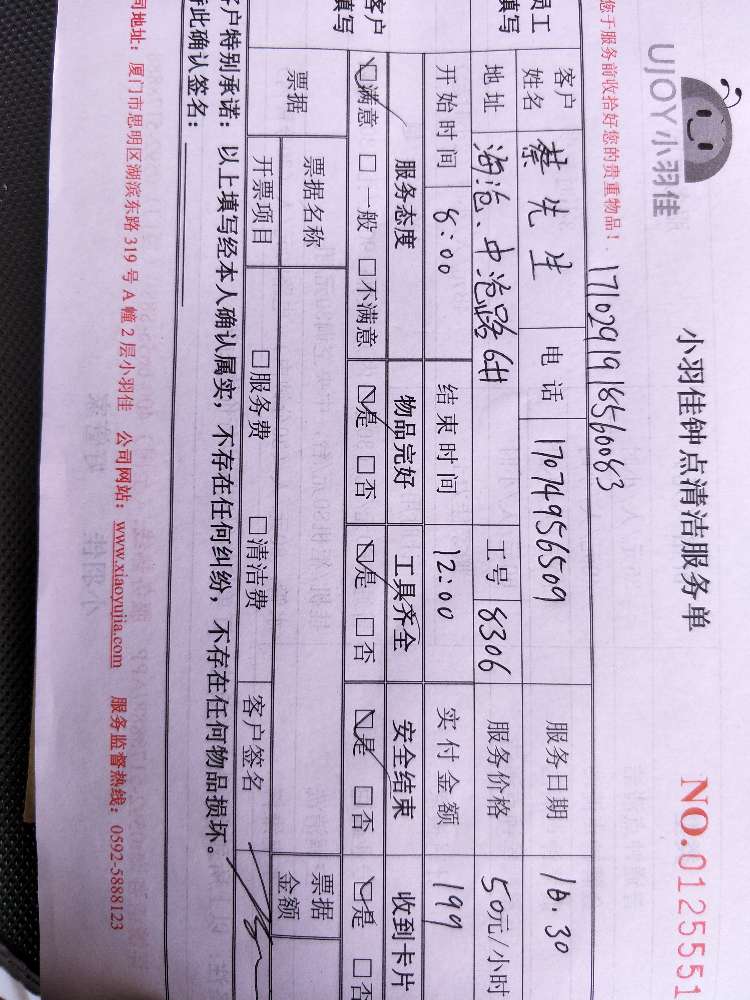 UJOY小羽佳
小羽佳钟点清洁服务单
NO.0125551
您于服务前收拾好您的贵重物品！
1710291918560083
员工
填写
客户姓名 蔡先生 电话 17074956509 服务日期 10.30
地址 海沧、中沧路6# 工号 8306 服务价格 50元/小时
开始时间 8:00 结束时间 12:00 实付金额 199
客户
填写
服务态度 物品完好 工具齐全 安全结束 收到卡片
☑满意 □一般 □不满意 ☑是 □否 ☑是 □否 ☑是 □否 ☑是 □否
票据 票据名称 票据金额
开票项目 □服务费 □清洁费 客户签名
客户特别承诺：以上填写经本人确认属实，不存在任何纠纷，不存在任何物品损坏。
特此确认签名：
司地址：厦门市思明区湖滨东路319号A幢2层小羽佳 公司网站：www.xiaoyujia.com 服务监督热线：0592-5888123